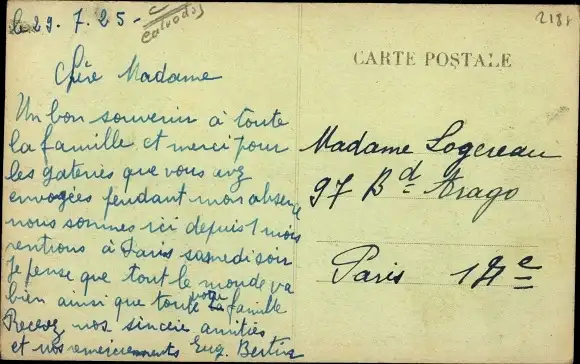 le 29.7.25-
Calvados
218r
CARTE POSTALE
Chère Madame
Un bon souvenir à toute
la famille et merci pour
les gateries que vous avez
envoyées pendant mon absence
nous sommes ici depuis 1 mois
rentrons à Paris samedi soir
Je pense que tout le monde va
bien ainsi que toute votre famille
Recevez nos sincères amitiés
et nos remerciements Eug. Bertin
Madame Logereau
97 Bd Arago
Paris 14e